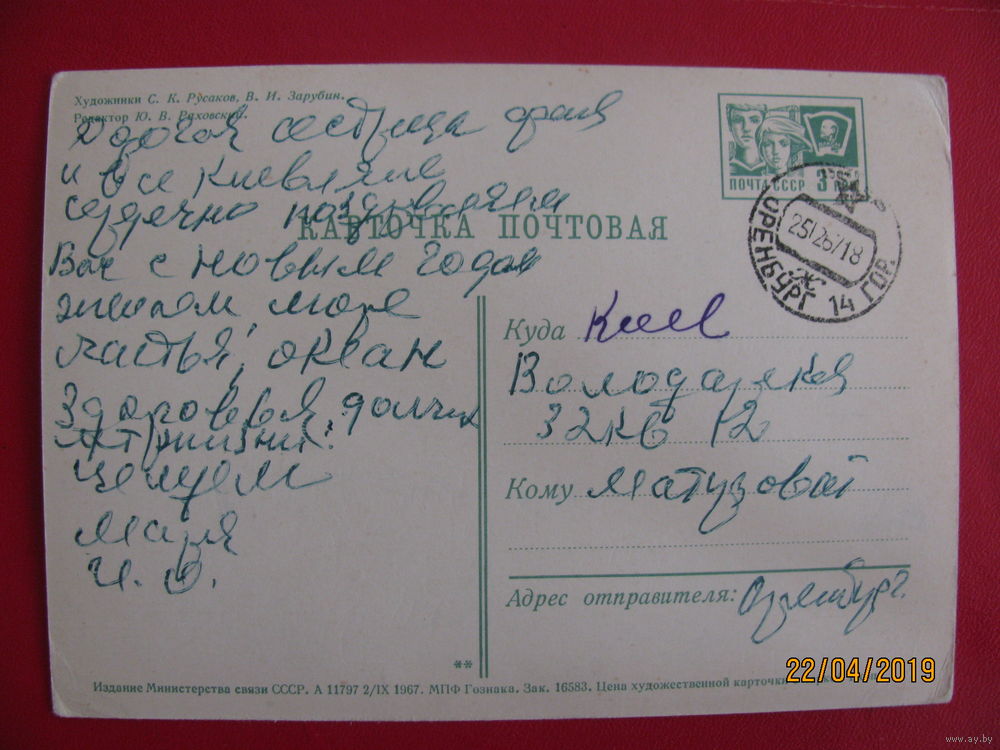 Художники С. К. Русаков, В. И. Зарубин.
Редактор Ю. В. Ряховский.
Дорогая сестрица Фаня
и все киевляне
сердечно поздравляем
Вас с новым годом
желаем море
счастья, океан
Здоровья, долгих
лет жизни.
Целуем
Маря
И. О.
КАРТОЧКА ПОЧТОВАЯ
ПОЧТА СССР 3
ОРЕНБУРГ 14 ГОР.
Куда Киев
Володарская
32 кв 12
Кому Матузовой
Адрес отправителя: Оренбург.
**
Издание Министерства связи СССР. А 11797 2/IX 1967. МПФ Гознака. Зак. 16583. Цена художественной карточки
22/04/2019
www.ay.by